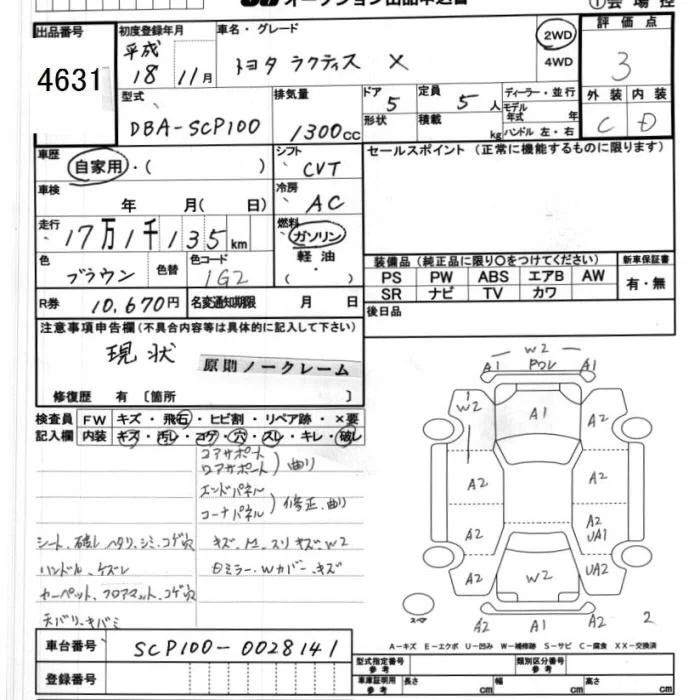 オークション出品申込書
①会場控
出品番号
4631
初度登録年月
平成
18 11月
車名・グレード
トヨタ ラクティス X
2WD
4WD
評価点
3
外装 内装
C D
型式
DBA-SCP100
排気量
1300cc
ドア 5
形状
定員 5人
積載 kg
ディーラー・並行
モデル年式 年
ハンドル 左・右
車歴
自家用・( )
シフト
CVT
セールスポイント (正常に機能するものに限ります)
車検
年 月( 日)
冷房
AC
走行
17万1千135km
燃料
ガソリン
軽油
( ・ )
色
ブラウン
色替
色コード
1G2
装備品 (純正品に限り〇をつけてください)
新車保証書
PS PW ABS エアB AW
有・無
SR ナビ TV カワ
R券 10,670円
名変通知期限 月 日
後日品
注意事項申告欄(不具合内容等は具体的に記入して下さい)
現状
原則ノークレーム
修復歴 有 〔箇所 〕
検査員記入欄
FW キズ・飛石・ヒビ割・リペア跡・×要
内装 キズ・汚レ・コゲ・穴・スレ・キレ・破レ
コアサポート
ロアサポート ) 曲り
エンドパネル
コーナパネル ) 修正、曲り
シート、破レ ヘタリ、シミ、コゲ穴
ハンドル、ケズレ
カーペット、フロアマット、コゲ穴
天バリ、キバミ
キズ、スリキズ、W2
Wカバー、キズ
W2
A1 ワレ A1
W2 A1 A2
A2 A2
A2 A2
UA1
A2 W2 UA2
スペア
A2 A1 A1 2
車台番号 SCP100-0028141
A-キズ E-エクボ U-凹み W-補修跡 S-サビ C-腐食 XX-交換済
登録番号
型式指定番号 参考
類別区分番号 参考
車庫証明用 参考 長さ cm 幅 cm 高さ cm